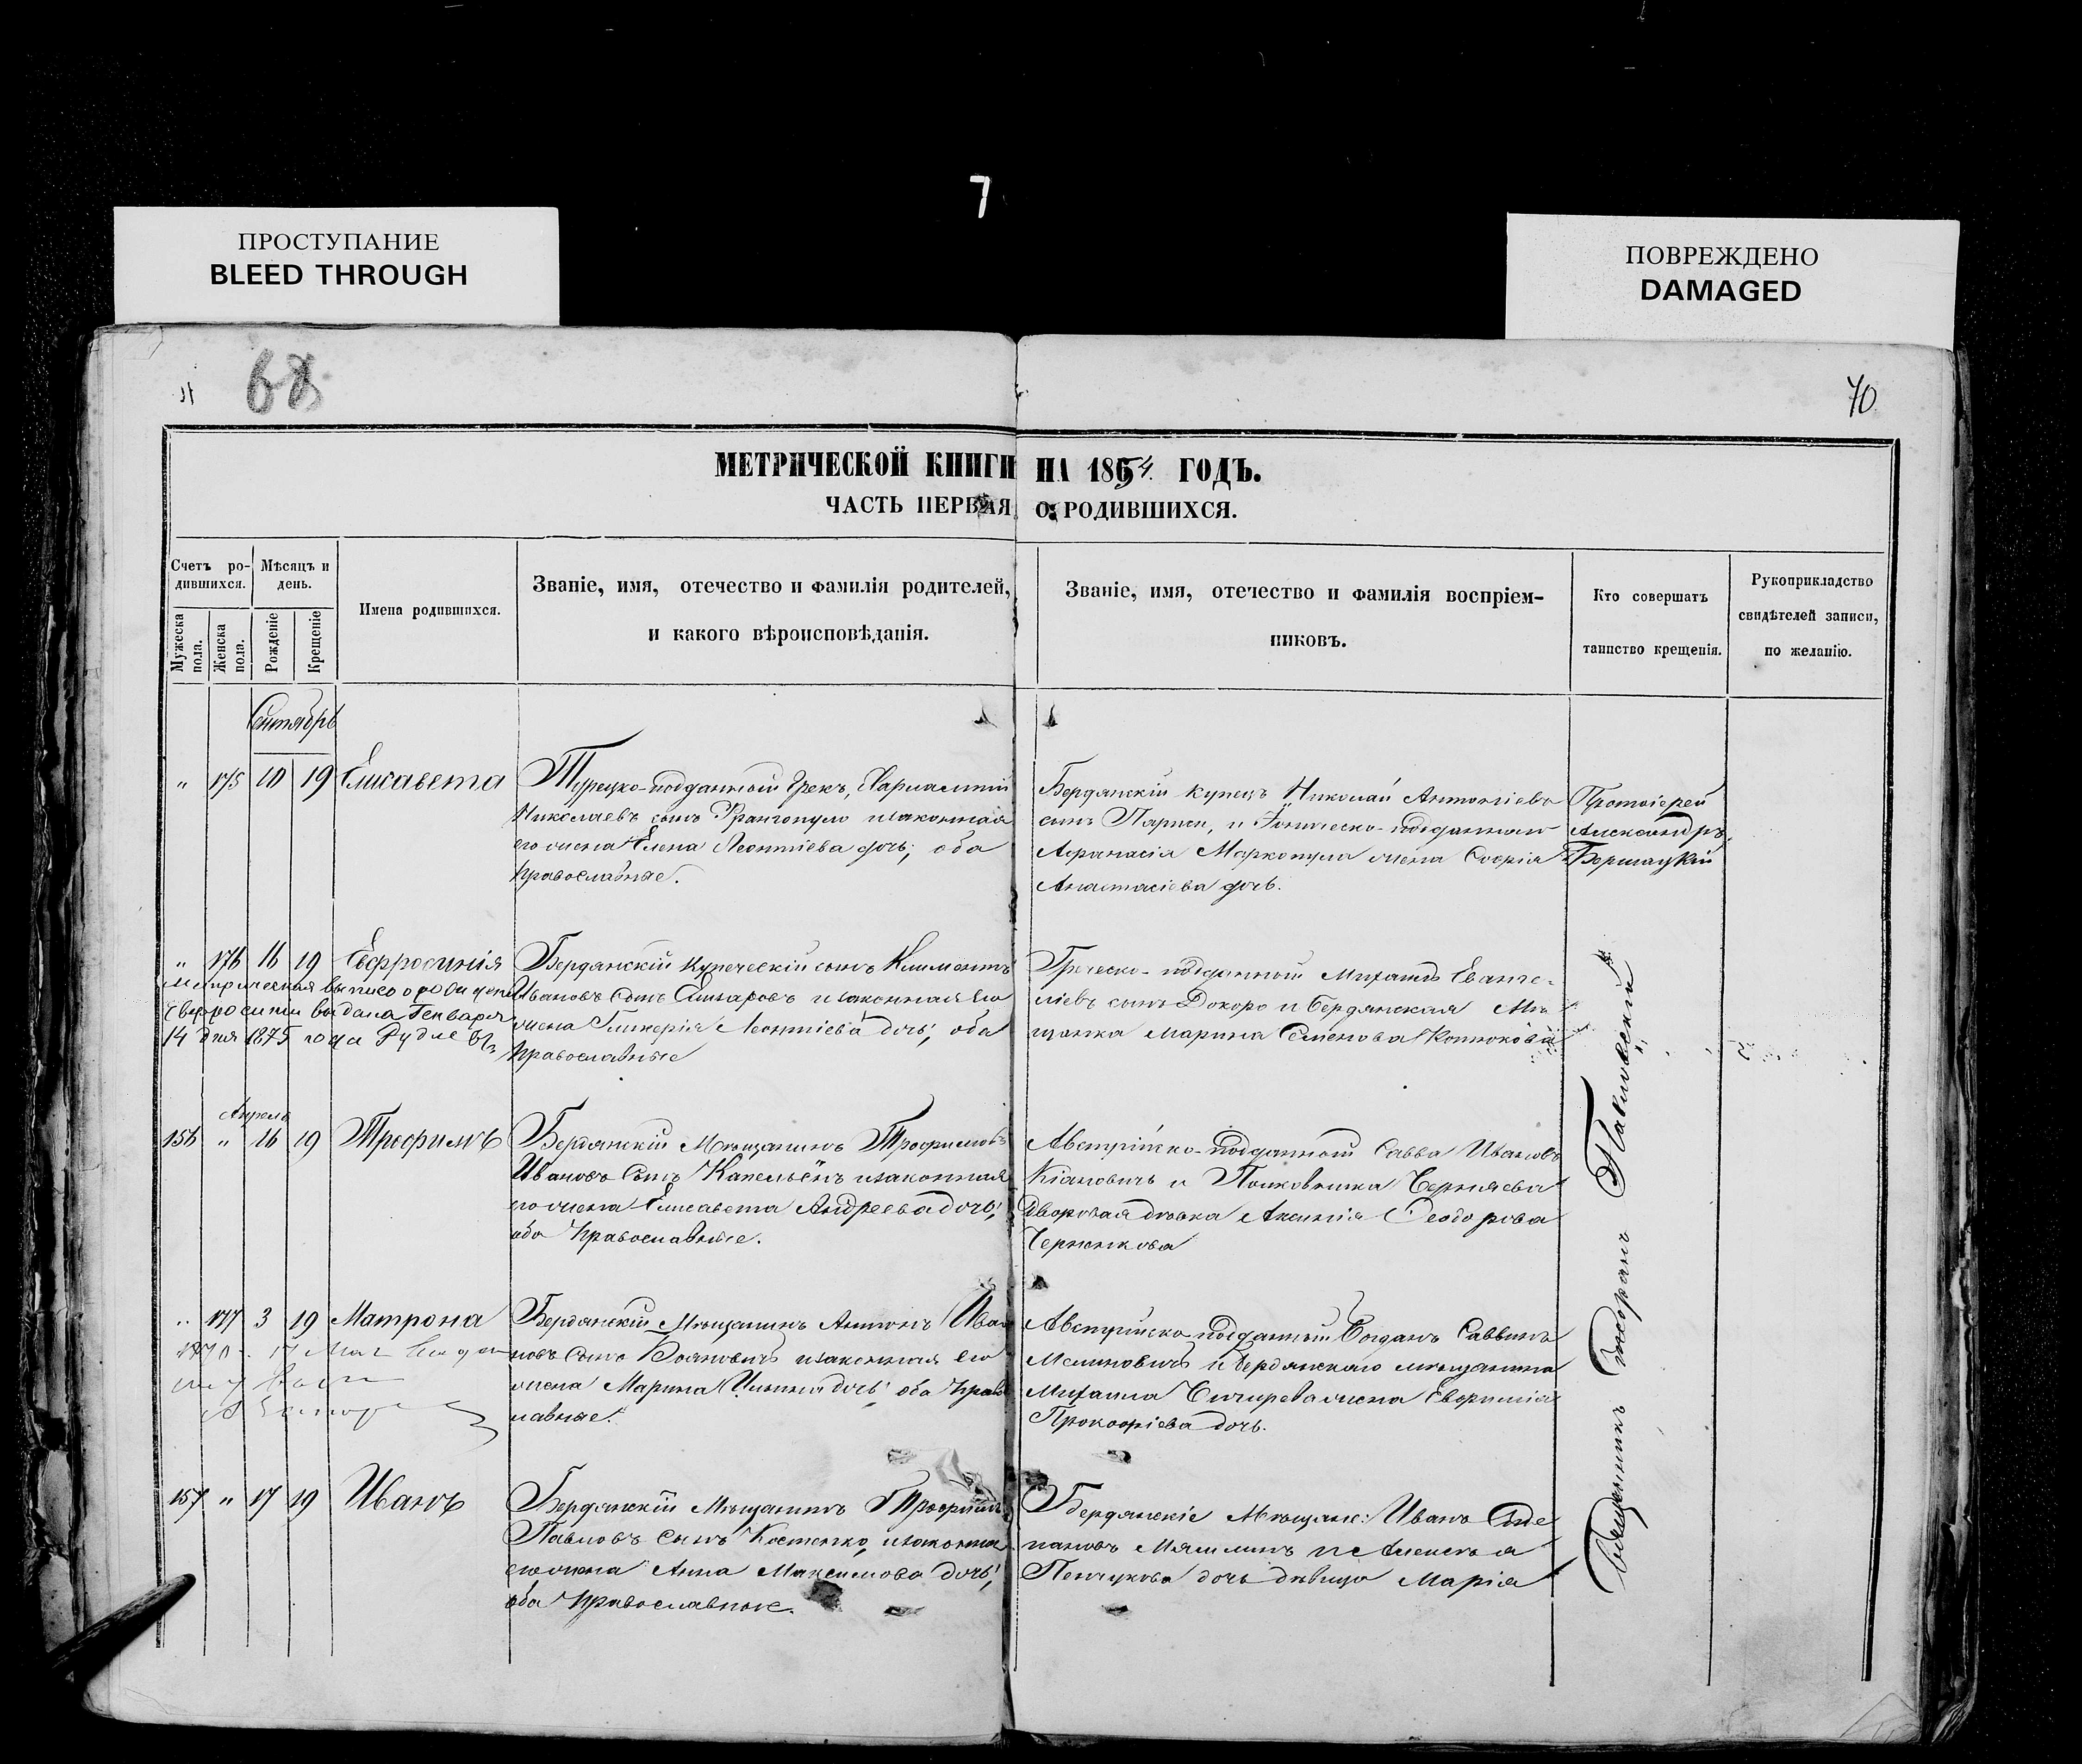 7
ПРОСТУПАНИЕ
BLEED THROUGH
ПОВРЕЖДЕНО
DAMAGED
68
70
МЕТРИЧЕСКОЙ КНИГИ НА 1854 ГОДЪ.
ЧАСТЬ ПЕРВАЯ, О РОДИВШИХСЯ.
Счетъ ро-
дившихся.
Мужеска пола.
Женска пола.
Мѣсяцъ и
день.
Рожденіе
Крещеніе
Имена родившихся.
Званіе, имя, отечество и фамилія родителей,
и какого вѣроисповѣданія.
Званіе, имя, отечество и фамилія воспріем-
никовъ.
Кто совершатъ
таинство крещенія.
Рукоприкладство
свидѣтелей записи,
по желанію.
Сентябрь
" 175 10 19 Елисавета
Турецко-подданный Грекъ, Харлампій
Николаевъ сынъ Франгопуло и законная
его жена Елена Леонтіева дочь; оба
Православные.
Бердянскій купецъ Николай Антоніевъ
сынъ, и Іоническо-подданнаго
Афанасія Маркопула жена Софія
Анастасіева дочь.
Протоіерей
Александръ
" 176 16 19 Евфросинія
Метрическая выпись о рожденіи
Евфросиніи выдана Генваря
14 дня 1875 года
Бердянскій купеческій сынъ Климентъ
Ивановъ сынъ Елизаровъ и законная его
жена Гликерія Леонтіева дочь; оба
Православные
Греческо-подданный Михаилъ Еванге-
ліевъ сынъ Докоро и Бердянская Мѣ-
щанка Марина Семенова
Апрель
156 " 16 19 Трофимъ
Бердянскій Мѣщанинъ Трофимъ
Ивановъ сынъ и законная
его жена Елисавета Андреева дочь;
оба Православные.
Австрійско-подданный Савва Ивановъ
и Полковника Черняева
дворовая дѣвка Аксинія Феодорова
" 177 3 19 Матрона
Бердянскій Мѣщанинъ Антонъ Ива-
новъ сынъ Вояновичъ и законная его
жена Марина Ильина дочь; оба Право
славные.
Австрійско-подданный Богданъ Саввинъ
и Бердянскаго мѣщанина
Михаила жена Евфимія
Прокофіева дочь.
157 " 17 19 Иванъ
Бердянскій Мѣщанинъ Трофимъ
Павловъ сынъ Костенко, и законная
его жена Анна Максимова дочь;
оба Православные.
Бердянскіе Мѣщане: Иванъ Сте
пановъ и Алексѣя
дочь дѣвица Марія
Священникъ Стефанъ Павловскій